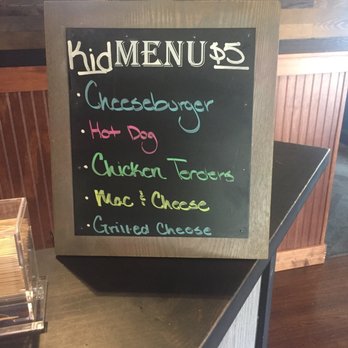 Kid MENU $5
• Cheeseburger
• Hot Dog
• Chicken Tenders
• Mac & Cheese
• Grilled Cheese